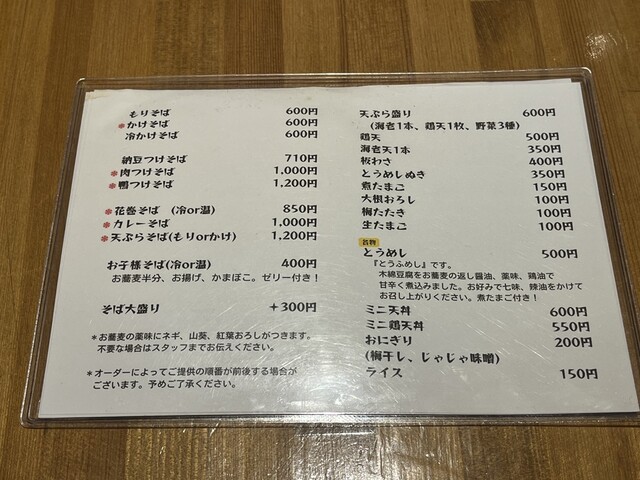 もりそば 600円
＊かけそば 600円
冷かけそば 600円
納豆つけそば 710円
＊肉つけそば 1,000円
＊鴨つけそば 1,200円
＊花巻そば (冷or温) 850円
＊カレーそば 1,000円
＊天ぷらそば(もりorかけ) 1,200円
お子様そば(冷or温) 400円
お蕎麦半分、お揚げ、かまぼこ。ゼリー付き！
そば大盛り +300円
＊お蕎麦の薬味にネギ、山葵、紅葉おろしがつきます。
不要な場合はスタッフまでお伝えください。
＊オーダーによってご提供の順番が前後する場合が
ございます。予めご了承ください。
天ぷら盛り 600円
(海老1本、鶏天1枚、野菜3種)
鶏天 500円
海老天1本 350円
板わさ 400円
とうめしぬき 350円
煮たまご 150円
大根おろし 100円
梅たたき 100円
生たまご 100円
名物
とうめし 500円
『とうふめし』です。
木綿豆腐をお蕎麦の返し醤油、薬味、鶏油で
甘辛く煮込みました。お好みで七味、辣油をかけて
お召し上がりください。煮たまご付き！
ミニ天丼 600円
ミニ鶏天丼 550円
おにぎり 200円
(梅干し、じゃじゃ味噌)
ライス 150円